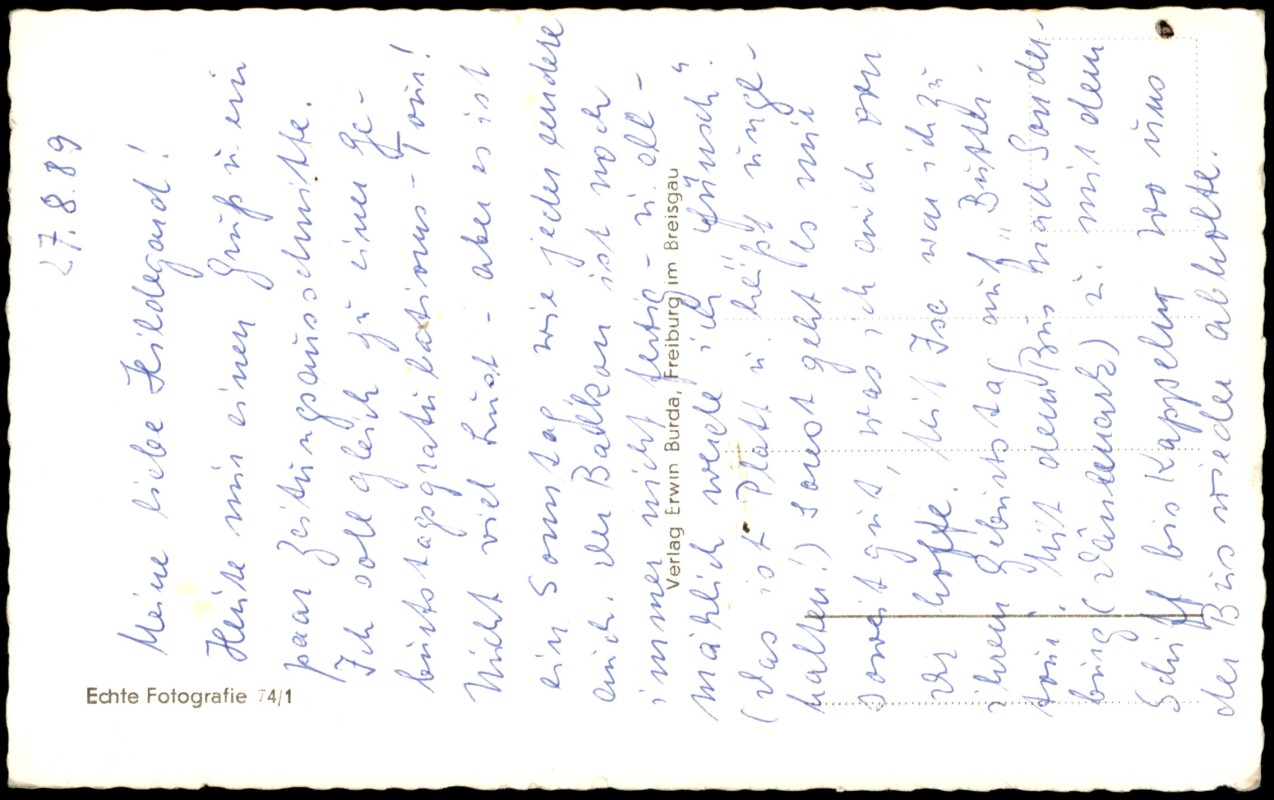 27.8.89
Meine liebe Hildegard!
Heute nur einen Gruß u. ein
paar Zeitungsausschnitte.
Ich soll gleich zu einer Ge-
burtstagsgratulations-Tour!
Nicht viel Lust - aber es ist
ein Sonntag wie jeder andere
auch. Der Balkon ist noch
immer nicht fertig - u. all-
mählich werde ich „günsch“.
(Das ist Platt u. heißt unge-
halten!) Sonst geht es mir
soweit gut, was ich auch von
Dir hoffe. Mit Ise war ich zu
ihrem Geburtstag auf „Butter-
tour“. Mit dem Bus nach Sonder-
burg (Dänemark) u. mit dem
Schiff bis Kappeln, wo uns
der Bus wieder abholte.
Echte Fotografie 74/1
Verlag Erwin Burda, Freiburg im Breisgau